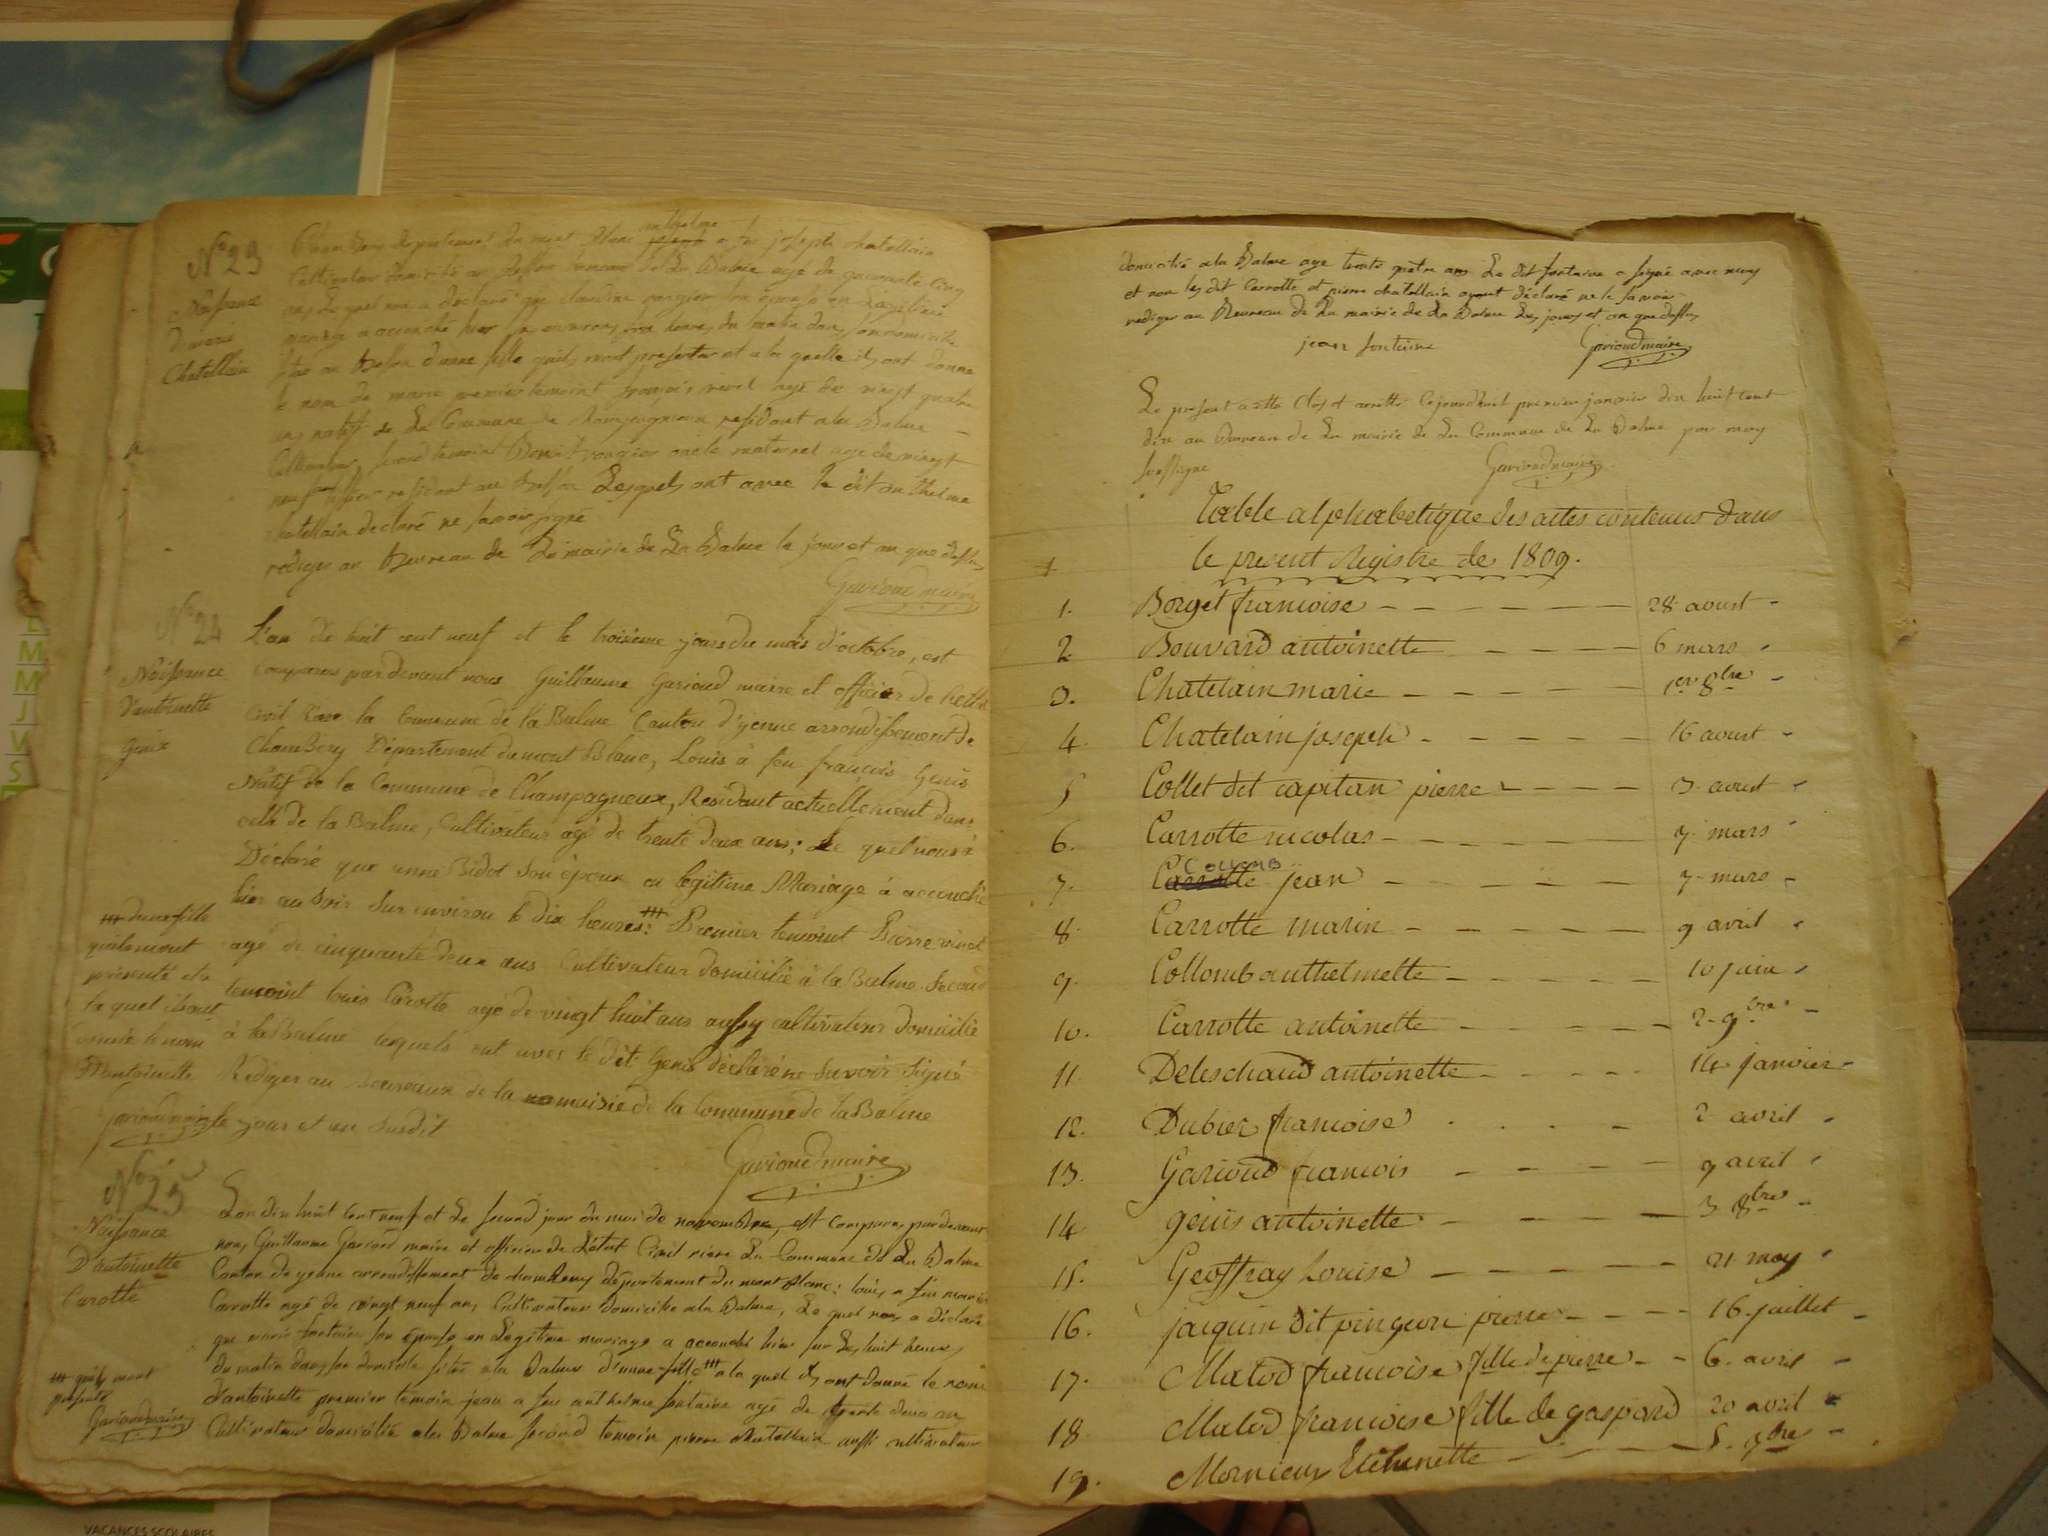 N° 23
Naissance
Chatellain
Chambery département du mont blanc anthelme a feu joseph chatellain
Cultivateur domicilié au hameau de La Balme agé de quarante cinq
ans Le quel nous a déclaré que claudine son épouse en Legitime
mariage a accouché hier du matin dans son domicile
d'unne fille quils mont presenter et a la quelle ils ont donné
le nom de marie premier temoint françois revel agé de vingt quatre
ans natif de La Commune de Champagneux residant a la Balme
Cultivateur second temoin Benoit oncle maternel agé de vingt
neuf residant au Lesquels ont avec le dit anthelme
chatellain declaré ne savoir signé
rediger au Beureau de La mairie de La Balme le jour et an que dessus
Garioud maire
N° 24
Naissance
D'antoinette
Genix
L'an dix huit cent neuf et le troisieme jour du mois d'octobre, est
comparus pardevant nous Guillaume Garioud maire et officier de l'etat
Civil la Commune de la Balme Canton d'yenne arrondissement de
Chambery Département du mont Blanc, Louis à feu françois Genis
Natif de la Commune de Champagneux, Residant actuellement dans
celle de la Balme, Cultivateur agé de trente deux ans; Le quel nous à
Déclaré que anne Bidot son épouse en legitime Mariage à accouché
hier au soir sur environ les dix heures: Premier temoint Pierre vincent
agé de cinquante deux ans Cultivateur domicilié à la Balme. Second
temoint louis Carotte agé de vingt huit ans aussy cultivateur domicilié
à la Balme lesquels ont avec le dit Genis déclaré ne savoir signé
Rediger au Beureaux de la mairie de la Commune de la Balme
le jour et an susdit
d'une fille
quils mont
présenté et a
la quel ils ont
donné le nom
D'antoinette
Garioud maire
Garioud maire
N° 25
Naissance
D'antoinette
Carotte
L'an dix huit cent neuf et Le second jour du moi de novembre, est comparus pardevant
nous Guillaume Garioud maire et officier de L'état Civil riere La Commune de La Balme
Canton de yenne arrondissement de chambery département du mont blanc: louis a feu marin
Carrotte agé de vingt neuf ans Cultivateur domicilié a la Balme, Le quel nous a déclaré
que marie fontaine son épouse en Legitime mariage a accouché hier sur Les huit heures
du matin dans son domicile sittué a la Balme d'unne fille a la quel ils ont donné le nom
d'antoinette premier témoin jean a feu anthelme fontaine agé de trente deux an
Cultivateur domicilié a la Balme second temoin pierre chatellain aussi cultivateur
quils mont
présenté
Garioud maire
domicilié a la Balme age trente quatre ans Le dit fontaine a signé avec nous
et non les dit Carrotte et pierre chatellain ayant déclaré ne le savoir
rediger au Beureau de La mairie de La Balme Les jours et an que dessus
jean fontaine
Garioud maire
Le present a été Clos et arretté Cejourdhuit premier janvier dix huit cent
dix au Bureau de La mairie de La Commune de La Balme par moy
soussigné
Garioud maire
Table alphabetique des actes contenus dans
le present Registre de 1809.
1. Borget francoise 28 aoust
2. Bouvard antoinette 6 mars
3. Chatelain marie 1er 8bre
4. Chatelain joseph 16 aoust
5 Collet dit capitan pierre 3 aoust
6. Carrotte nicolas 7 mars
7. COLLOMB jean 7 mars
8. Carrotte marin 9 avril
9. Collomb anthelmette 10 juin
10. Carrotte antoinette 2 9bre
11. Deleschaud antoinette 14 janvier
12. Dubiez francoise 2 avril
13. Garioud francois 9 avril
14 genis antoinette 3 8bre
15. Geoffray Louise 21 may
16. jacquin dit pingeon pierre 16 juillet
17. Malod francoise fille de pierre 6. avril
18 Malod francoise fille de gaspard 20 avril
19. Mornieux 5. 9bre
VACANCES SCOLAIRES